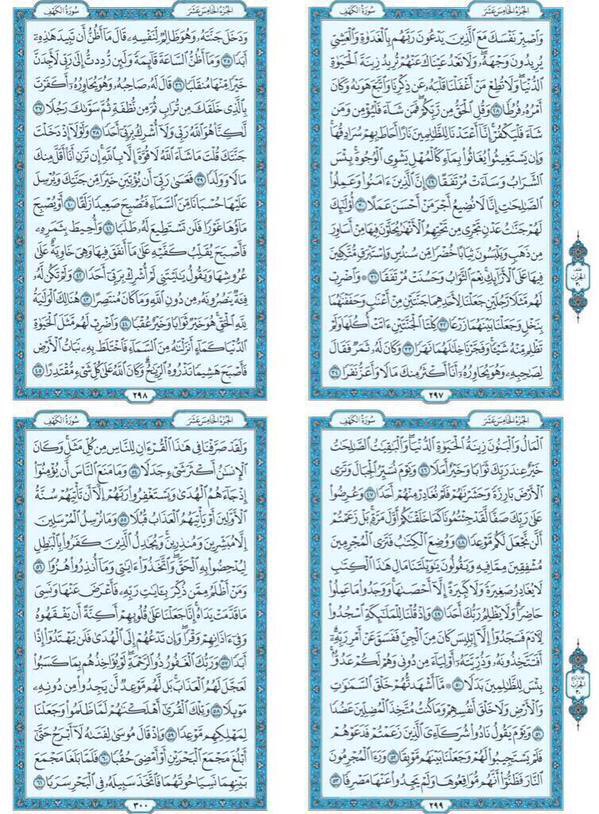 الجزء الخامس عشر
سورة الكهف
واصبر نفسك مع الذين يدعون ربهم بالغدوة والعشي
يريدون وجهه ولا تعد عيناك عنهم تريد زينة الحيوة
الدنيا ولا تطع من أغفلنا قلبه عن ذكرنا واتبع هوىه وكان
أمره فرطا ٢٨ وقل الحق من ربكم فمن شاء فليؤمن ومن
شاء فليكفر إنا أعتدنا للظلمين نارا أحاط بهم سرادقها
وإن يستغيثوا يغاثوا بماء كالمهل يشوي الوجوه بئس
الشراب وساءت مرتفقا ٢٩ إن الذين ءامنوا وعملوا
الصلحت إنا لا نضيع أجر من أحسن عملا ٣٠ أولئك
لهم جنت عدن تجري من تحتهم الأنهر يحلون فيها من أساور
من ذهب ويلبسون ثيابا خضرا من سندس وإستبرق متكئين
فيها على الأرائك نعم الثواب وحسنت مرتفقا ٣١ واضرب
لهم مثلا رجلين جعلنا لأحدهما جنتين من أعنب وحففنهما
بنخل وجعلنا بينهما زرعا ٣٢ كلتا الجنتين ءاتت أكلها ولم
تظلم منه شيئا وفجرنا خللهما نهرا ٣٣ وكان له ثمر فقال
لصحبه وهو يحاوره أنا أكثر منك مالا وأعز نفرا ٣٤
٢٩٧
الجزء الخامس عشر
سورة الكهف
ودخل جنته وهو ظالم لنفسه قال ما أظن أن تبيد هذه
أبدا ٣٥ وما أظن الساعة قائمة ولئن رددت إلى ربي لأجدن
خيرا منها منقلبا ٣٦ قال له صاحبه وهو يحاوره أكفرت
بالذي خلقك من تراب ثم من نطفة ثم سوىك رجلا ٣٧
لكنا هو الله ربي ولا أشرك بربي أحدا ٣٨ ولولا إذ دخلت
جنتك قلت ما شاء الله لا قوة إلا بالله إن ترن أنا أقل منك
مالا وولدا ٣٩ فعسى ربي أن يؤتين خيرا من جنتك ويرسل
عليها حسبانا من السماء فتصبح صعيدا زلقا ٤٠ أو يصبح
ماؤها غورا فلن تستطيع له طلبا ٤١ وأحيط بثمره
فأصبح يقلب كفيه على ما أنفق فيها وهي خاوية على
عروشها ويقول يليتني لم أشرك بربي أحدا ٤٢ ولم تكن له
فئة ينصرونه من دون الله وما كان منتصرا ٤٣ هنالك الولية
لله الحق هو خير ثوابا وخير عقبا ٤٤ واضرب لهم مثل الحيوة
الدنيا كماء أنزلنه من السماء فاختلط به نبات الأرض
فأصبح هشيما تذروه الريح وكان الله على كل شيء مقتدرا ٤٥
٢٩٨
الجزء الخامس عشر
سورة الكهف
المال والبنون زينة الحيوة الدنيا والبقيت الصلحت
خير عند ربك ثوابا وخير أملا ٤٦ ويوم نسير الجبال وترى
الأرض بارزة وحشرنهم فلم نغادر منهم أحدا ٤٧ وعرضوا
على ربك صفا لقد جئتمونا كما خلقنكم أول مرة بل زعمتم
ألن نجعل لكم موعدا ٤٨ ووضع الكتب فترى المجرمين
مشفقين مما فيه ويقولون يويلتنا مال هذا الكتب
لا يغادر صغيرة ولا كبيرة إلا أحصىها ووجدوا ما عملوا
حاضرا ولا يظلم ربك أحدا ٤٩ وإذ قلنا للملئكة اسجدوا
لأدم فسجدوا إلا إبليس كان من الجن ففسق عن أمر ربه
أفتتخذونه وذريته أولياء من دوني وهم لكم عدو
بئس للظلمين بدلا ٥٠ ما أشهدتهم خلق السموت
والأرض ولا خلق أنفسهم وما كنت متخذ المضلين عضدا
٥١ ويوم يقول نادوا شركاءي الذين زعمتم فدعوهم
فلم يستجيبوا لهم وجعلنا بينهم موبقا ٥٢ ورءا المجرمون
النار فظنوا أنهم مواقعوها ولم يجدوا عنها مصرفا ٥٣
٢٩٩
الجزء الخامس عشر
سورة الكهف
ولقد صرفنا في هذا القرءان للناس من كل مثل وكان
الإنسن أكثر شيء جدلا ٥٤ وما منع الناس أن يؤمنوا
إذ جاءهم الهدى ويستغفروا ربهم إلا أن تأتيهم سنة
الأولين أو يأتيهم العذاب قبلا ٥٥ وما نرسل المرسلين
إلا مبشرين ومنذرين ويجدل الذين كفروا بالبطل
ليدحضوا به الحق واتخذوا ءايتي وما أنذروا هزوا ٥٦
ومن أظلم ممن ذكر بءايت ربه فأعرض عنها ونسي
ما قدمت يداه إنا جعلنا على قلوبهم أكنة أن يفقهوه
وفي ءاذانهم وقرا وإن تدعهم إلى الهدى فلن يهتدوا إذا
أبدا ٥٧ وربك الغفور ذو الرحمة لو يؤاخذهم بما كسبوا
لعجل لهم العذاب بل لهم موعد لن يجدوا من دونه
موئلا ٥٨ وتلك القرى أهلكنهم لما ظلموا وجعلنا
لمهلكهم موعدا ٥٩ وإذ قال موسى لفتىه لا أبرح حتى
أبلغ مجمع البحرين أو أمضي حقبا ٦٠ فلما بلغا مجمع
بينهما نسيا حوتهما فاتخذ سبيله في البحر سربا ٦١
٣٠٠